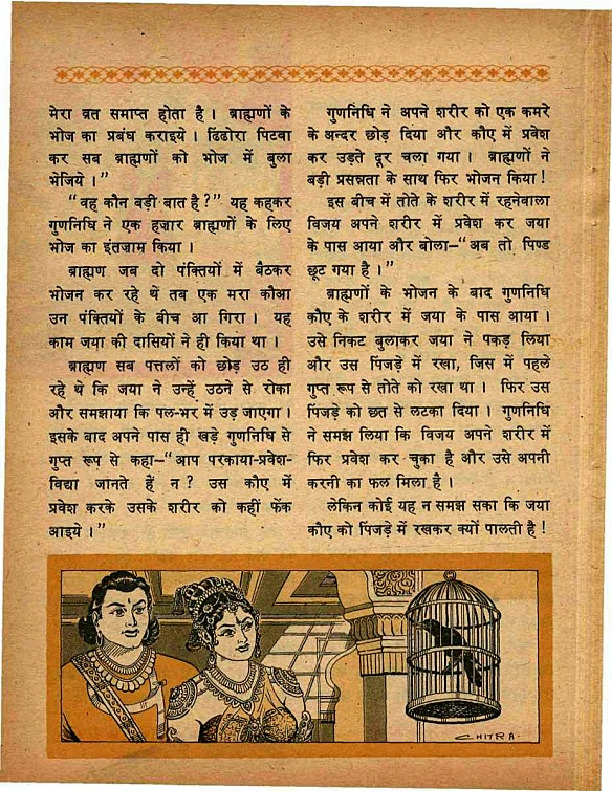 मेरा व्रत समाप्त होता है। ब्राह्मणों के
भोज का प्रबंध कराइये। ढिंढोरा पिटवा
कर सब ब्राह्मणों को भोज में बुला
भेजिये।"
"वह कौन बड़ी बात है?" यह कहकर
गुणनिधि ने एक हज़ार ब्राह्मणों के लिए
भोज का इंतज़ाम किया।
ब्राह्मण जब दो पंक्तियों में बैठकर
भोजन कर रहे थे तब एक मरा कौआ
उन पंक्तियों के बीच आ गिरा। यह
काम जया की दासियों ने ही किया था।
ब्राह्मण सब पत्तलों को छोड़ उठ ही
रहे थे कि जया ने उन्हें उठने से रोका
और समझाया कि पल-भर में उड़ जाएगा।
इसके बाद अपने पास ही खड़े गुणनिधि से
गुप्त रूप से कहा–"आप परकाया-प्रवेश-
विद्या जानते हैं न? उस कौए में
प्रवेश करके उसके शरीर को कहीं फेंक
आइये।"
गुणनिधि ने अपने शरीर को एक कमरे
के अन्दर छोड़ दिया और कौए में प्रवेश
कर उड़ते दूर चला गया। ब्राह्मणों ने
बड़ी प्रसन्नता के साथ फिर भोजन किया!
इस बीच में तोते के शरीर में रहनेवाला
विजय अपने शरीर में प्रवेश कर जया
के पास आया और बोला–"अब तो पिण्ड
छूट गया है।"
ब्राह्मणों के भोजन के बाद गुणनिधि
कौए के शरीर में जया के पास आया।
उसे निकट बुलाकर जया ने पकड़ लिया
और उस पिंजड़े में रखा, जिस में पहले
गुप्त रूप से तोते को रखा था। फिर उस
पिंजड़े को छत से लटका दिया। गुणनिधि
ने समझ लिया कि विजय अपने शरीर में
फिर प्रवेश कर चुका है और उसे अपनी
करनी का फल मिला है।
लेकिन कोई यह न समझ सका कि जया
कौए को पिंजड़े में रखकर क्यों पालती है!
CHITRA.